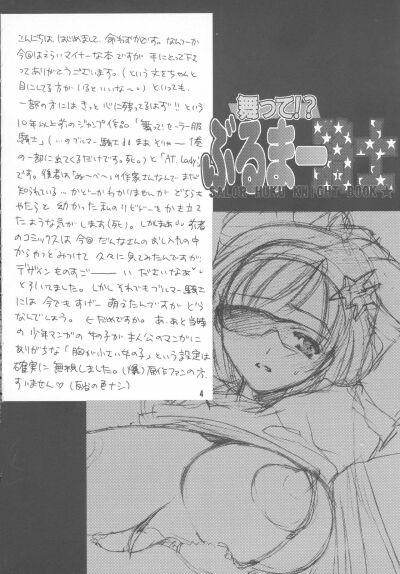 こんにちは はじめまして、命わずかです。なんつーか
今回はえらいマイナーな本ですが 手にとって下さって
ありがとうございます。(という文をちゃんと
目にしてる方が いるといいな〜) といっても、
一部の方には きっと心に残ってるはず!! という
10年以上前のジャンプ作品「舞って!セーラー服
騎士」(…のブルマー騎士
の一部に出てくるだけです。死。)と「AT. Lady!」
です。後者は「ぬ〜べ〜」の作家さんなんで まだ
知られている…かどーか わかりませんが どちらも
やたらと 幼かった私のリビドーを かき立て
たような気がします(死)。しかしまぁ 前者
のコミックスは 今回だんなさんのおし入れの中
からやっとみつけて 久々に見てみたんですが
デザインものすごーーー い だだいなあ
と引いてました。しかし それでもブルマー騎士
には 今でもすげー萌えたんですが どう
なんでしょう。 ←だめですか。あ、あと当時
の少年マンガの 女の子が まん公のマンガに
ありがちな「胸が小さい女の子」という設定は
確実に無視しました。(爆) 原作ファンの方、
すいません♡
4
舞って!?
ぶるまー騎士
SALOR HUKU KNIGHT BOOK